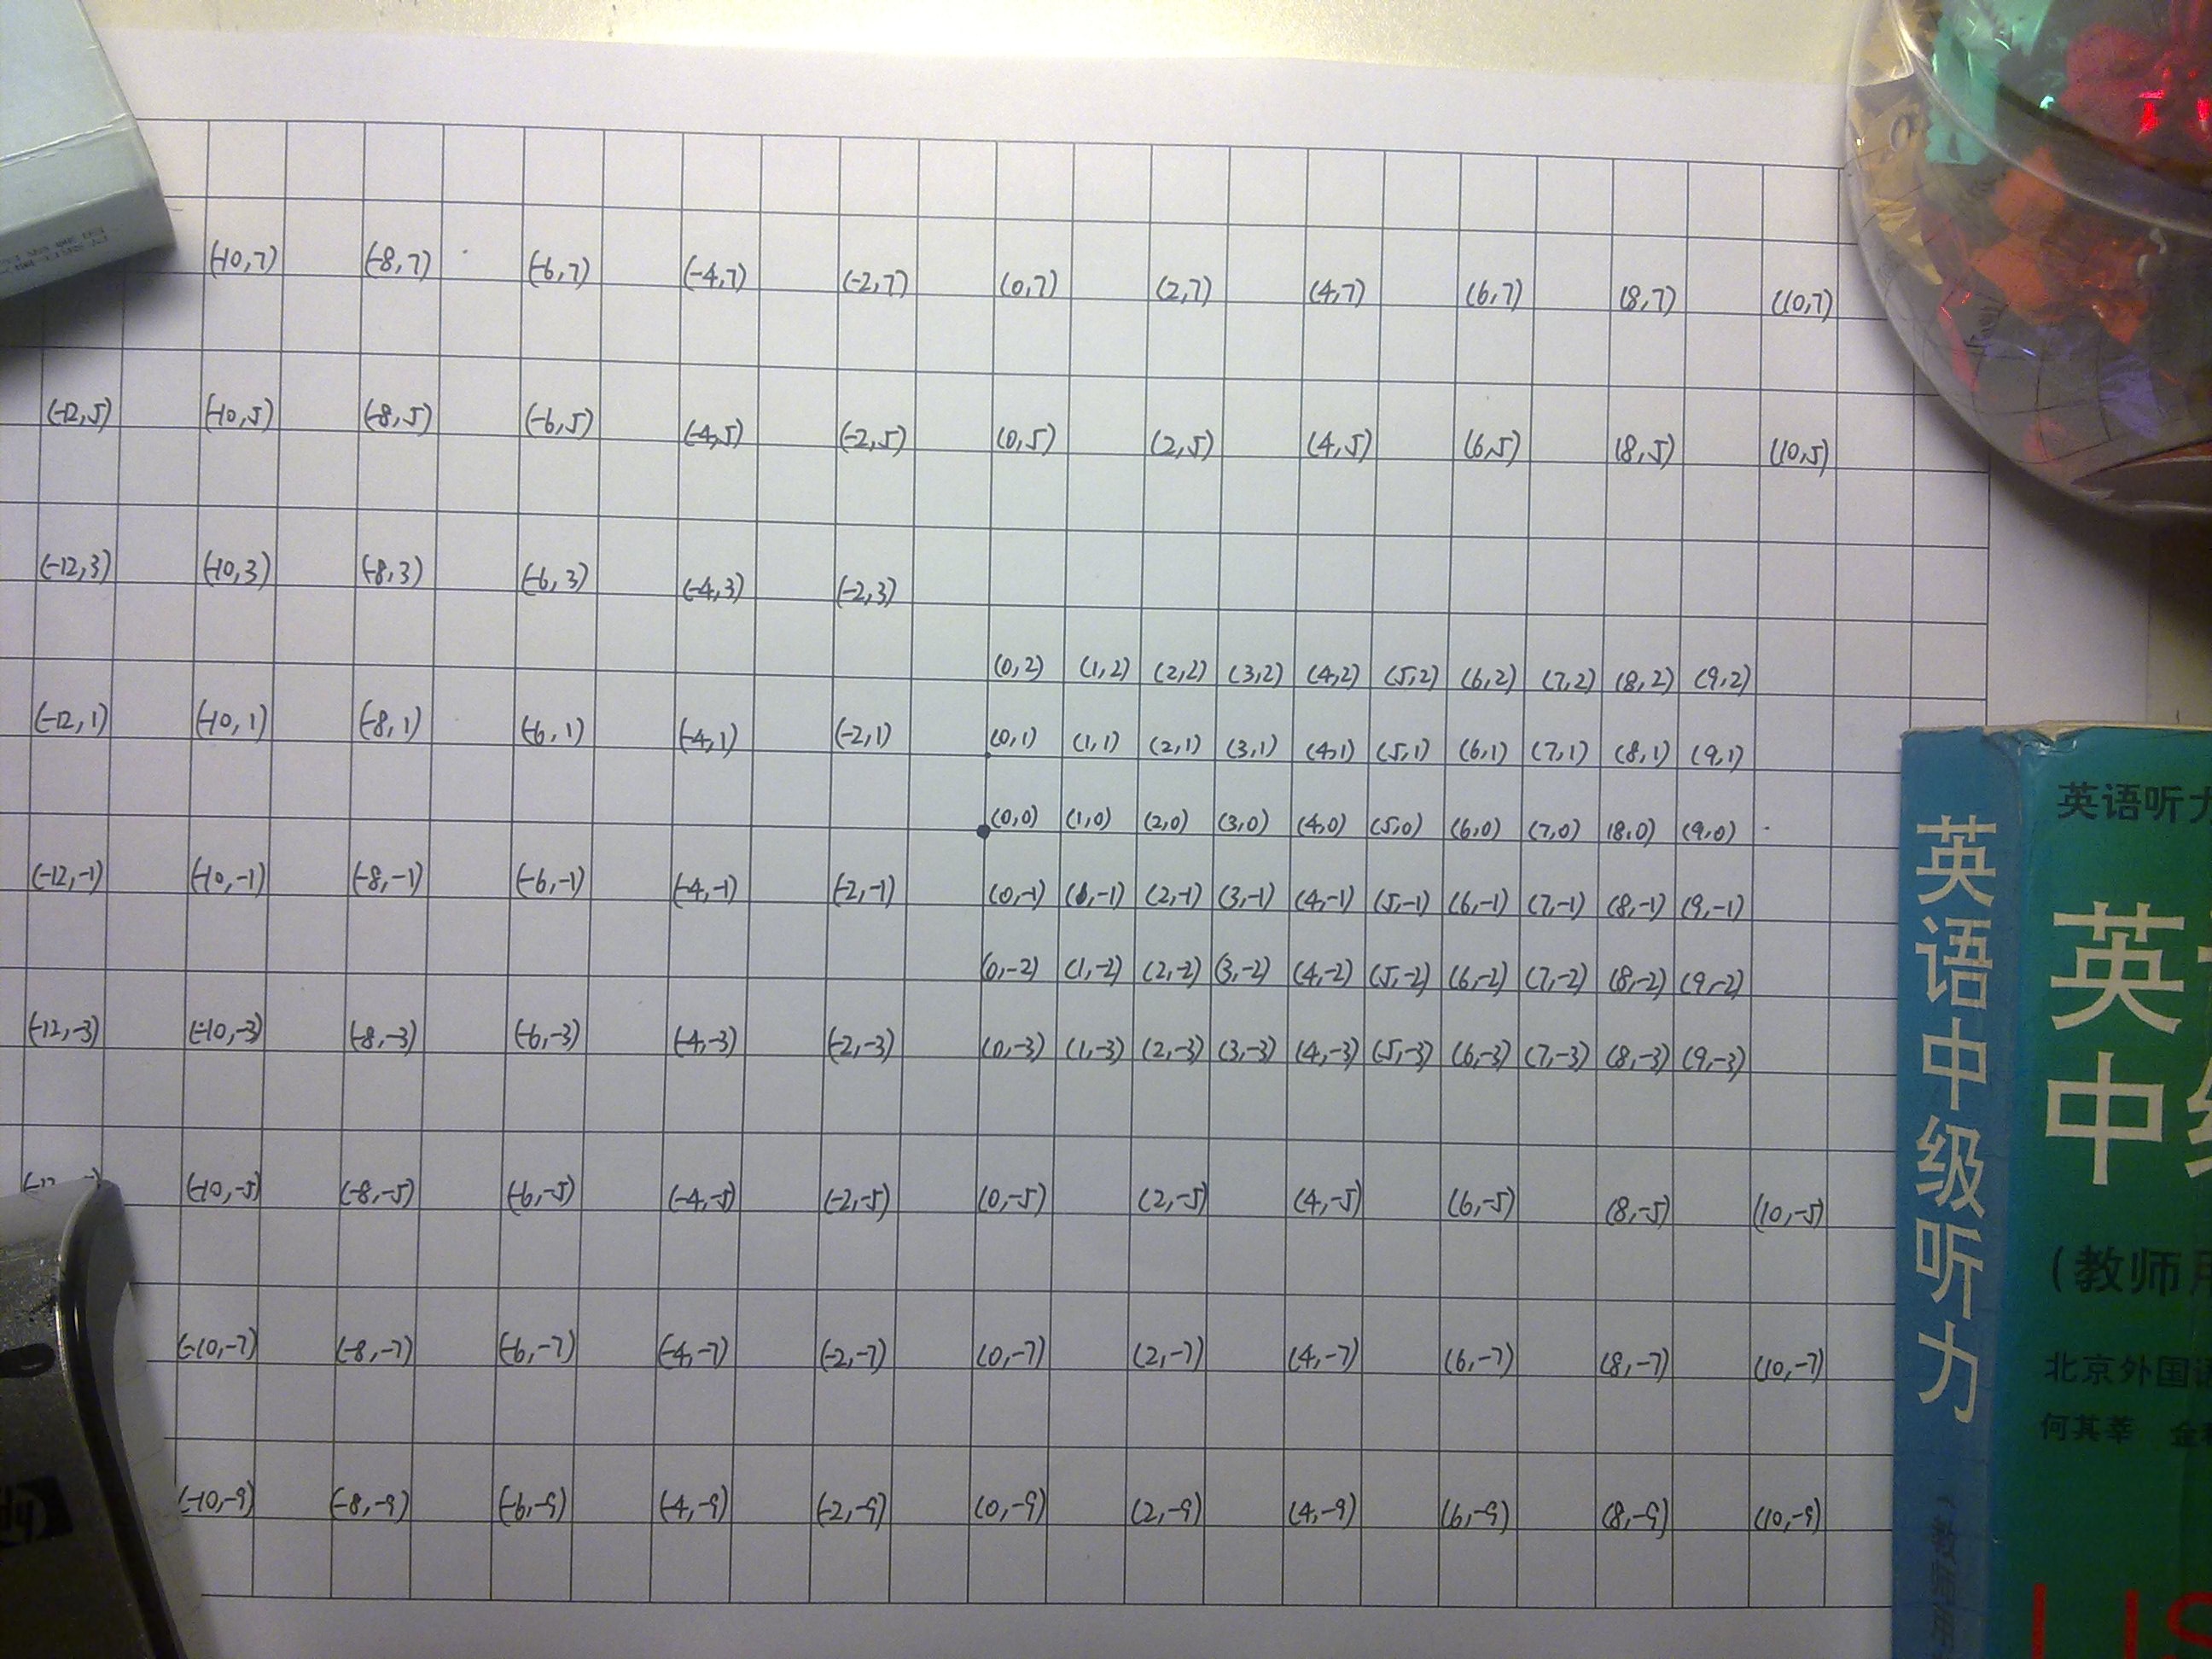 (-10,7) (-8,7) (-6,7) (-4,7) (-2,7) (0,7) (2,7) (4,7) (6,7) (8,7) (10,7)
(-12,5) (-10,5) (-8,5) (-6,5) (-4,5) (-2,5) (0,5) (2,5) (4,5) (6,5) (8,5) (10,5)
(-12,3) (-10,3) (-8,3) (-6,3) (-4,3) (-2,3)
(0,2) (1,2) (2,2) (3,2) (4,2) (5,2) (6,2) (7,2) (8,2) (9,2)
(-12,1) (-10,1) (-8,1) (-6,1) (-4,1) (-2,1) (0,1) (1,1) (2,1) (3,1) (4,1) (5,1) (6,1) (7,1) (8,1) (9,1)
(0,0) (1,0) (2,0) (3,0) (4,0) (5,0) (6,0) (7,0) (8,0) (9,0)
(-12,-1) (-10,-1) (-8,-1) (-6,-1) (-4,-1) (-2,-1) (0,-1) (1,-1) (2,-1) (3,-1) (4,-1) (5,-1) (6,-1) (7,-1) (8,-1) (9,-1)
(0,-2) (1,-2) (2,-2) (3,-2) (4,-2) (5,-2) (6,-2) (7,-2) (8,-2) (9,-2)
(-12,-3) (-10,-3) (-8,-3) (-6,-3) (-4,-3) (-2,-3) (0,-3) (1,-3) (2,-3) (3,-3) (4,-3) (5,-3) (6,-3) (7,-3) (8,-3) (9,-3)
(-10,-5) (-8,-5) (-6,-5) (-4,-5) (-2,-5) (0,-5) (2,-5) (4,-5) (6,-5) (8,-5) (10,-5)
(-10,-7) (-8,-7) (-6,-7) (-4,-7) (-2,-7) (0,-7) (2,-7) (4,-7) (6,-7) (8,-7) (10,-7)
(-10,-9) (-8,-9) (-6,-9) (-4,-9) (-2,-9) (0,-9) (2,-9) (4,-9) (6,-9) (8,-9) (10,-9)
英语中级听力
英语听
英
中
(教师
北京外国
何其莘
LIS